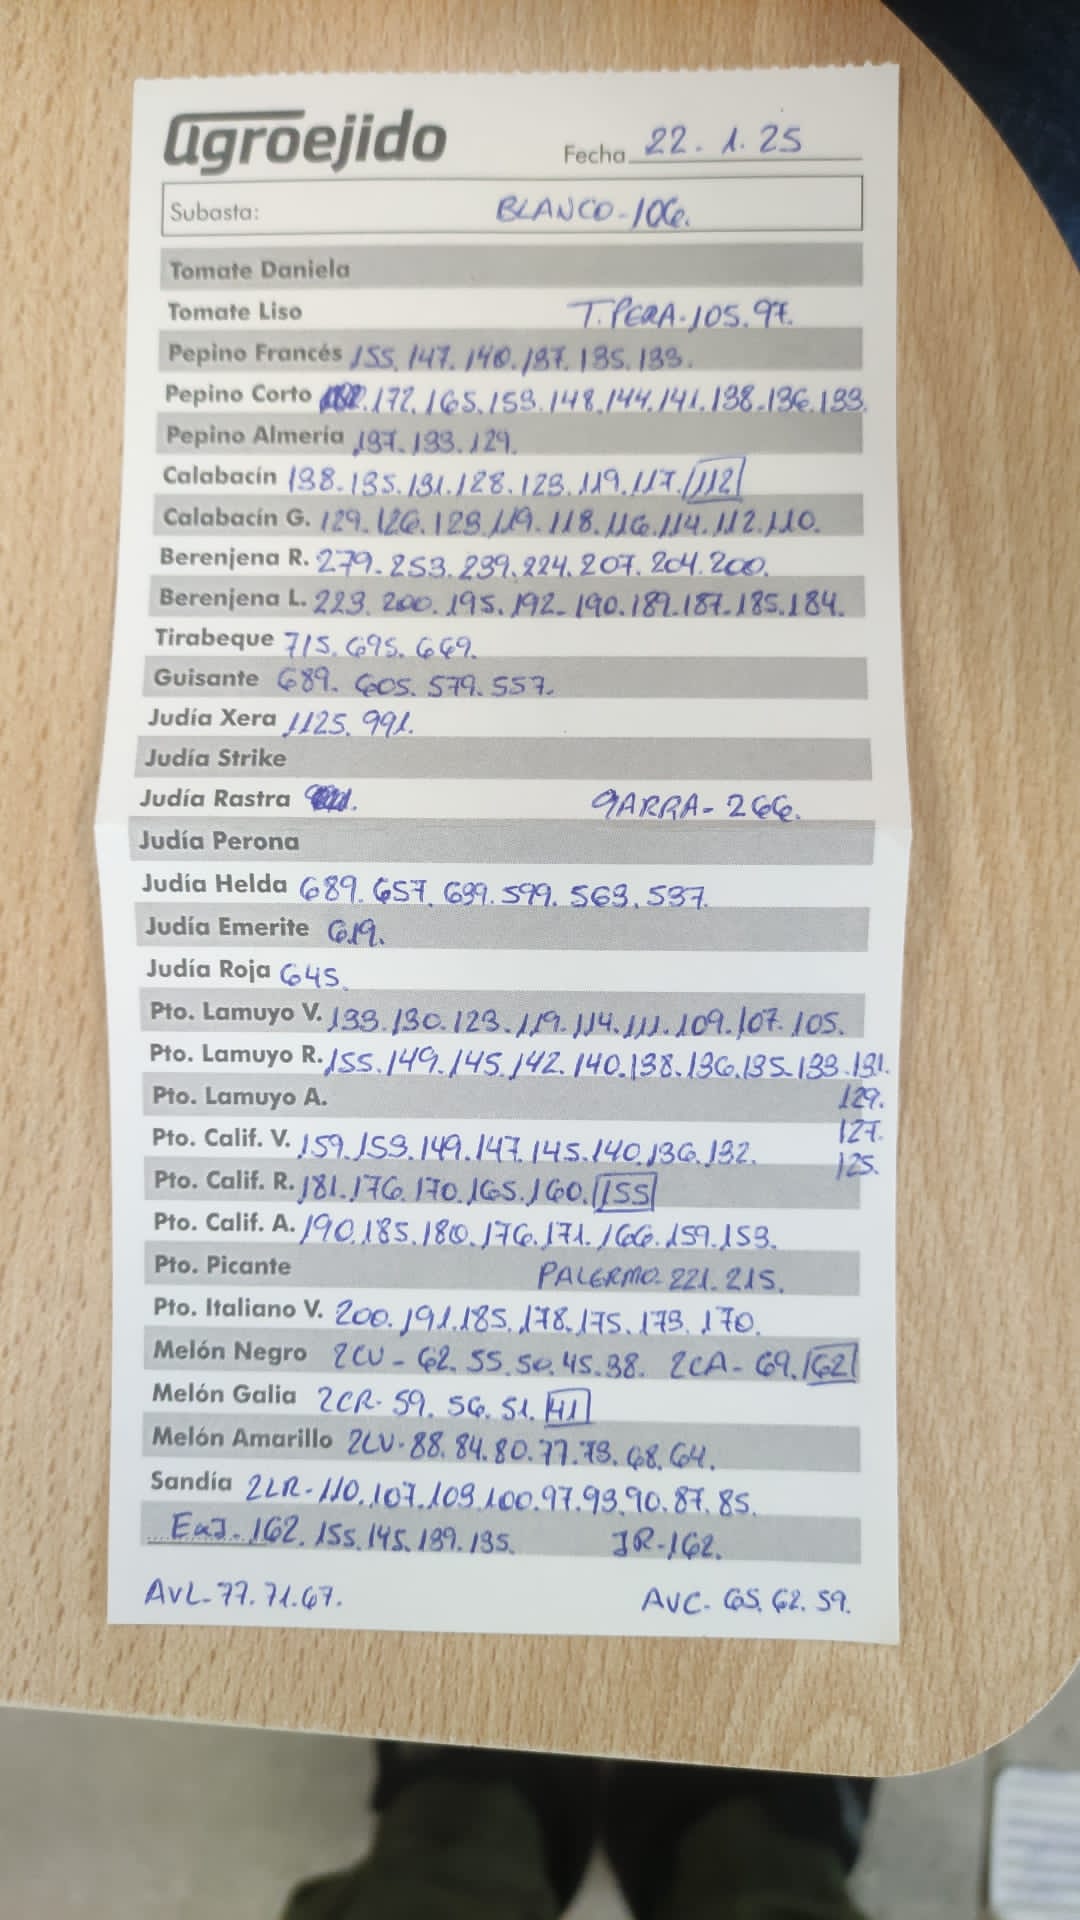 agroejido Fecha 22.1.25
Subasta: BLANCO-106.
Tomate Daniela
Tomate Liso T.PERA-105.97.
Pepino Francés 155.147.140.137.135.133.
Pepino Corto 172.165.153.148.144.141.138.136.133.
Pepino Almería 137.133.129.
Calabacín 138.135.131.128.123.119.117.112
Calabacín G. 129.126.123.119.118.116.114.112.110.
Berenjena R. 279.253.239.224.207.204.200.
Berenjena L. 223.200.195.192.190.189.187.185.184.
Tirabeque 715.695.669.
Guisante 689.605.579.557.
Judía Xera 1125.991.
Judía Strike
Judía Rastra GARRA-266.
Judía Perona
Judía Helda 689.657.639.599.563.537.
Judía Emerite 619.
Judía Roja 645.
Pto. Lamuyo V. 133.130.123.119.114.111.109.107.105.
Pto. Lamuyo R. 155.149.145.142.140.138.136.135.133.131.
Pto. Lamuyo A. 129.
127.
Pto. Calif. V. 159.153.149.147.145.140.136.132.
125.
Pto. Calif. R. 181.176.170.165.160.155
Pto. Calif. A. 190.185.180.176.171.166.159.153.
Pto. Picante PALERMO-221.215.
Pto. Italiano V. 200.191.185.178.175.173.170.
Melón Negro 2CV-62.55.50.45.38. 2CA-69.62
Melón Galia 2CR-59.56.51.41
Melón Amarillo 2LV-88.84.80.77.73.68.64.
Sandía 2LR-110.107.103.100.97.93.90.87.85.
162.155.145.139.135. JR-162.
AVL-77.71.67. AVC-65.62.59.